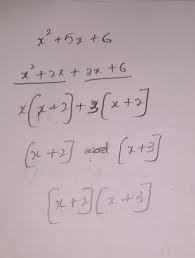 x²+5x+6
x²+2x+3x+6
x[x+2]+3[x+2]
[x+2] and [x+3]
[x+2][x+3]